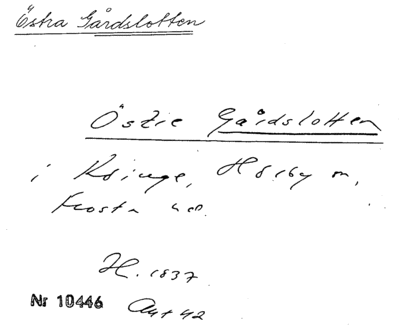 Östra Gårdslotten
Östre Gårdslotten
i Kringe, Hörby sn,
Frosta hd.
H. 1837
Nr 10446